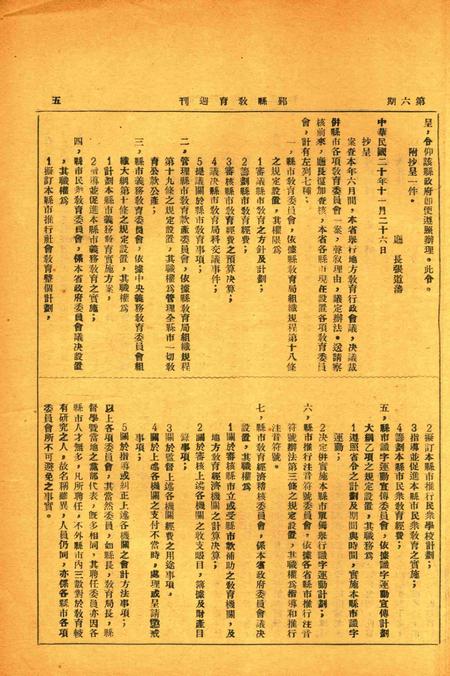 第六期
鄞縣教育週刊
五
呈，令仰該縣政府即便遵照辦理。此令。
附抄呈一件。
廳長張道藩
中華民國二十年十一月二十六日
抄呈
案查本年六月間，本省舉行地方教育行政會議，決議裁
併縣市各項教育委員會一案，聲叙理由，議定辦法。送請察
核前來，廳長復加查核，本省各縣市現在設置各項教育委員
會，計有左列七種；
一，縣市教育委員會，依據縣教育局組織規程第十八條
之規定設置，其權限爲
1審議縣市教育之方針及計劃；
2籌劃縣市教育經費；
3審核縣市教育經費之預算決算；
4議決縣市教育局科交議事件；
5提議關於縣市教育事項；
二，管理縣市教育款產委員會，依據縣教育局組織規程
第十九條之規定設置，其職權爲管理全縣市一切教
育公款公產；
三，縣市義務教育委員會，依據中央義務教育委員會組
織大綱第十條之規定設置，其職權爲
1計劃本縣市義務教育實施方案，
2指導並促進本縣市義務教育之實施；
四，縣市民衆教育委員會，係本省政府委員會議決設置
，其職權爲
1擬訂本縣市推行社會教育整個計劃，
2擬訂本縣市推行民衆學校計劃；
3指導並促進本縣市民衆教育之實施；
4籌劃本縣市民衆教育經費；
五，縣市識字運動宣傳委員會，依據識字運動宣傳計劃
大綱乙項之規定設置，其職務爲
1遵照省令之計劃及期間與時間，實施本縣市識字
運動；
2決定併實施本縣市單獨舉行識字運動計劃；
六，縣市推行注音符號委員會，依據各省縣市推行注音
符號辦法第三條之規定設置，其職權爲指導和推行
注音符號。
七，縣市教育經濟稽核委員會，係本省政府委員會議決
設置，其職權爲
1關於審核縣市立或受縣市款補助之教育機關，及
地方教育經濟機關之計算決算；
2關於審核上述各機關之收支賬目，簿據及財產目
錄事項；
3關於監督上述各機關經費之用途事項。
4關於上述各機關之支付不當時，處理或呈請懲戒
事項；
5關於指導或糾正上述各機關之會計方法事項；
以上各項委員會，其當然委員，如縣長，教育局長，縣
督學暨當地之黨部代表，旣多相同，其聘任委員亦因各
縣市人才無多，凡所聘任，不外縣市內三數對於教育較
有研究之人。故名稱雖異，人員仍同，亦係各縣市各項
委員會所不可避免之事實。